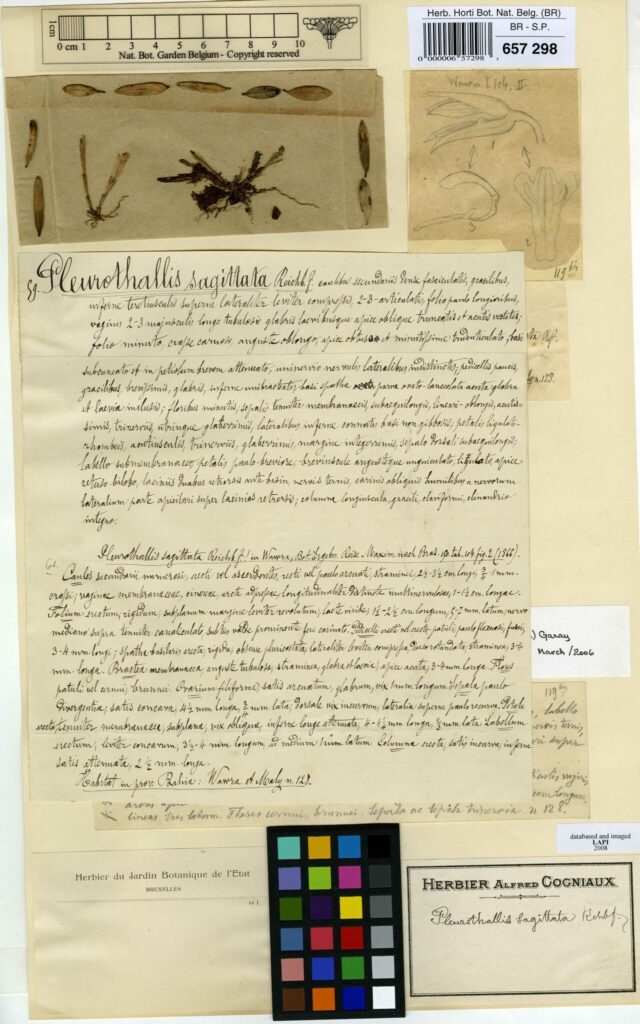 1cm
0 cm 1 2 3 4 5 6 7 8 9 10
Nat. Bot. Garden Belgium - Copyright reserved
Herb. Horti Bot. Nat. Belg. (BR)
BR - S.P.
657 298
0 000006 57298
Wawra l. 104, II
1
3
2
119 bis
Pleurothallis sagittata Reichb. f. caulibus secundariis dense fasciculatis, gracilibus,
inferne teretiusculis superne lateraliter leviter compressis, 2-3-articulatis, folio paulo longioribus,
vaginis 2-3 majusculis longe tubulosis glabris laevibusque apice oblique truncatis et acutis vestitis;
folio minuto, crasse carnoso, anguste oblongo, apice obtuso et minutissime tridenticulato, basi
subcuneato et in petiolum brevem attenuato, uninervio nervulis lateralibus indistinctis; pedicellis paucis,
gracilibus, brevissimis, glabris, inferne unibracteatis, basi spatha parva ovato-lanceolata acuta glabra
et laevia inclusis; floribus minutis, sepalis tenuiter membranaceis subaequilongis, lineari-oblongis, acutis-
simis, trinerviis, utrinque glaberrimis, lateralibus inferne connatis basi non gibbosis; petalis ligulato-
rhombeis, acutiusculis, trinerviis, glaberrimis, margine integerrimis, sepalo dorsali subaequilongis;
labello submembranaceo, petalis paulo breviore, breviuscule angusteque unguiculato, ligulato, apice
retuso-bilobo, laciniis duabus retrorsis ante basin, nervis ternis, carinis obliquis humilibus a nervorum
lateralium parte apicilari super lacinias retrorsis; columna longiuscula, gracili, claviformi, clinandrio
integro.
Pleurothallis sagittata Reichb. f.! in Wawra, Bot. Ergebn. Reise Maxim. nach Bras. tab. fig. 2 (1866).
Caules secundarii numerosi, erecti vel ascendentes, recti vel paulo arcuati, straminei, 2½-3½ cm. longi, mm.
crassi; vaginae membranaceae, cinereae, arcte adpressae, longitudinaliter distincte multinervulosae, 1-1½ cm. longae.
Folium erectum, rigidum, subplanum margine leviter revolutum, laete viride, 1½-2½ cm. longum, 5-7 mm. latum, nervo
mediano supra tenuiter canaliculato subtus valde prominente fere carinato. Pedicelli erecti vel erecto-patuli, paulo flexuosi, fusci,
3-4 mm. longi; spatha basilaris erecta, rigida, obscure pluricostata, lateraliter leviter compressa, dorso rotundata, straminea, 3-4
mm. longa. Bractea membranacea, anguste tubulosa, straminea, glabra et laevia, apice acuta, 3-4 mm. longa. Flores
patuli vel cernui, brunnei. Ovarium filiforme, satis arcuatum, glabrum, vix 1 mm. longum. Sepala paulo
divergentia, satis concava, 4½ mm. longa, mm. lata, dorsale vix incurvum, lateralia superne paulo recurva. Petala
erecta, tenuiter membranacea, subplana, vix obliqua, inferne longe attenuata, 4-4½ mm. longa, mm. lata. Labellum
erectum, leviter concavum, 3½-4 mm. longum ad medium 1 mm. latum. Columna erecta, satis incurva, inferne
satis attenuata, 2½ mm. longa.
Habitat in prov. Bahia: Wawra et Maly n. 128.
n. 128.
) Garay
March / 2006
119 bis
labello
super
vagini
longum
lineas tres latum. Flores cernui, brunnei. Sepala ac tepala trinervia n. 128.
databased and imaged
LAPI
2008
Herbier du Jardin Botanique de l'Etat
BRUXELLES
HERBIER ALFRED COGNIAUX
Pleurothallis sagittata Rchb. f.